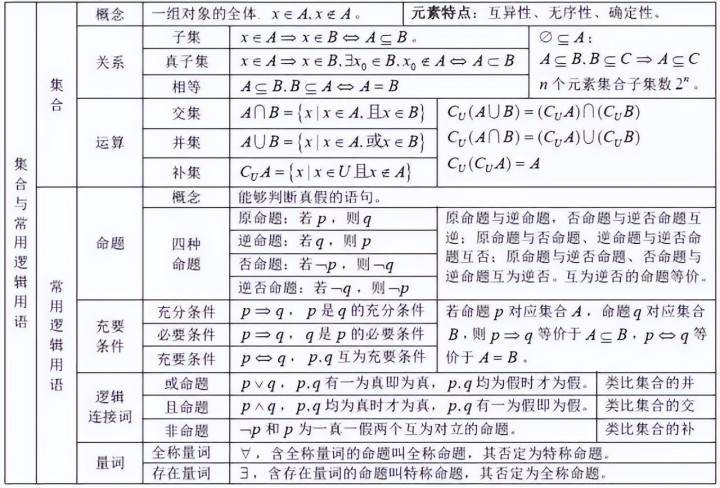 集合与常用逻辑用语
集合
概念
一组对象的全体. x∈A, x∉A。
元素特点：互异性、无序性、确定性。
关系
子集
x∈A⇒x∈B⇔A⊆B。
真子集
x∈A⇒x∈B, ∃x₀∈B, x₀∉A⇔A⊂B
相等
A⊆B, B⊆A⇔A=B
∅⊆A；
A⊆B, B⊆C⇒A⊆C
n个元素集合子集数2ⁿ。
运算
交集
A∩B={x|x∈A, 且x∈B}
并集
A∪B={x|x∈A, 或x∈B}
补集
C_U A={x|x∈U且x∉A}
C_U(A∪B)=(C_U A)∩(C_U B)
C_U(A∩B)=(C_U A)∪(C_U B)
C_U(C_U A)=A
常用逻辑用语
命题
概念
能够判断真假的语句。
四种
命题
原命题：若p，则q
逆命题：若q，则p
否命题：若¬p，则¬q
逆否命题：若¬q，则¬p
原命题与逆命题，否命题与逆否命题互
逆；原命题与否命题、逆命题与逆否命
题互否；原命题与逆否命题、否命题与
逆命题互为逆否。互为逆否的命题等价。
充要
条件
充分条件
p⇒q，p是q的充分条件
必要条件
p⇒q，q是p的必要条件
充要条件
p⇔q，p,q互为充要条件
若命题p对应集合A，命题q对应集合
B，则p⇒q等价于A⊆B，p⇔q等
价于A=B。
逻辑
连接词
或命题
p∨q，p,q有一为真即为真，p,q均为假时才为假。
类比集合的并
且命题
p∧q，p,q均为真时才为真，p,q有一为假即为假。
类比集合的交
非命题
¬p和p为一真一假两个互为对立的命题。
类比集合的补
量词
全称量词
∀，含全称量词的命题叫全称命题，其否定为特称命题。
存在量词
∃，含存在量词的命题叫特称命题，其否定为全称命题。